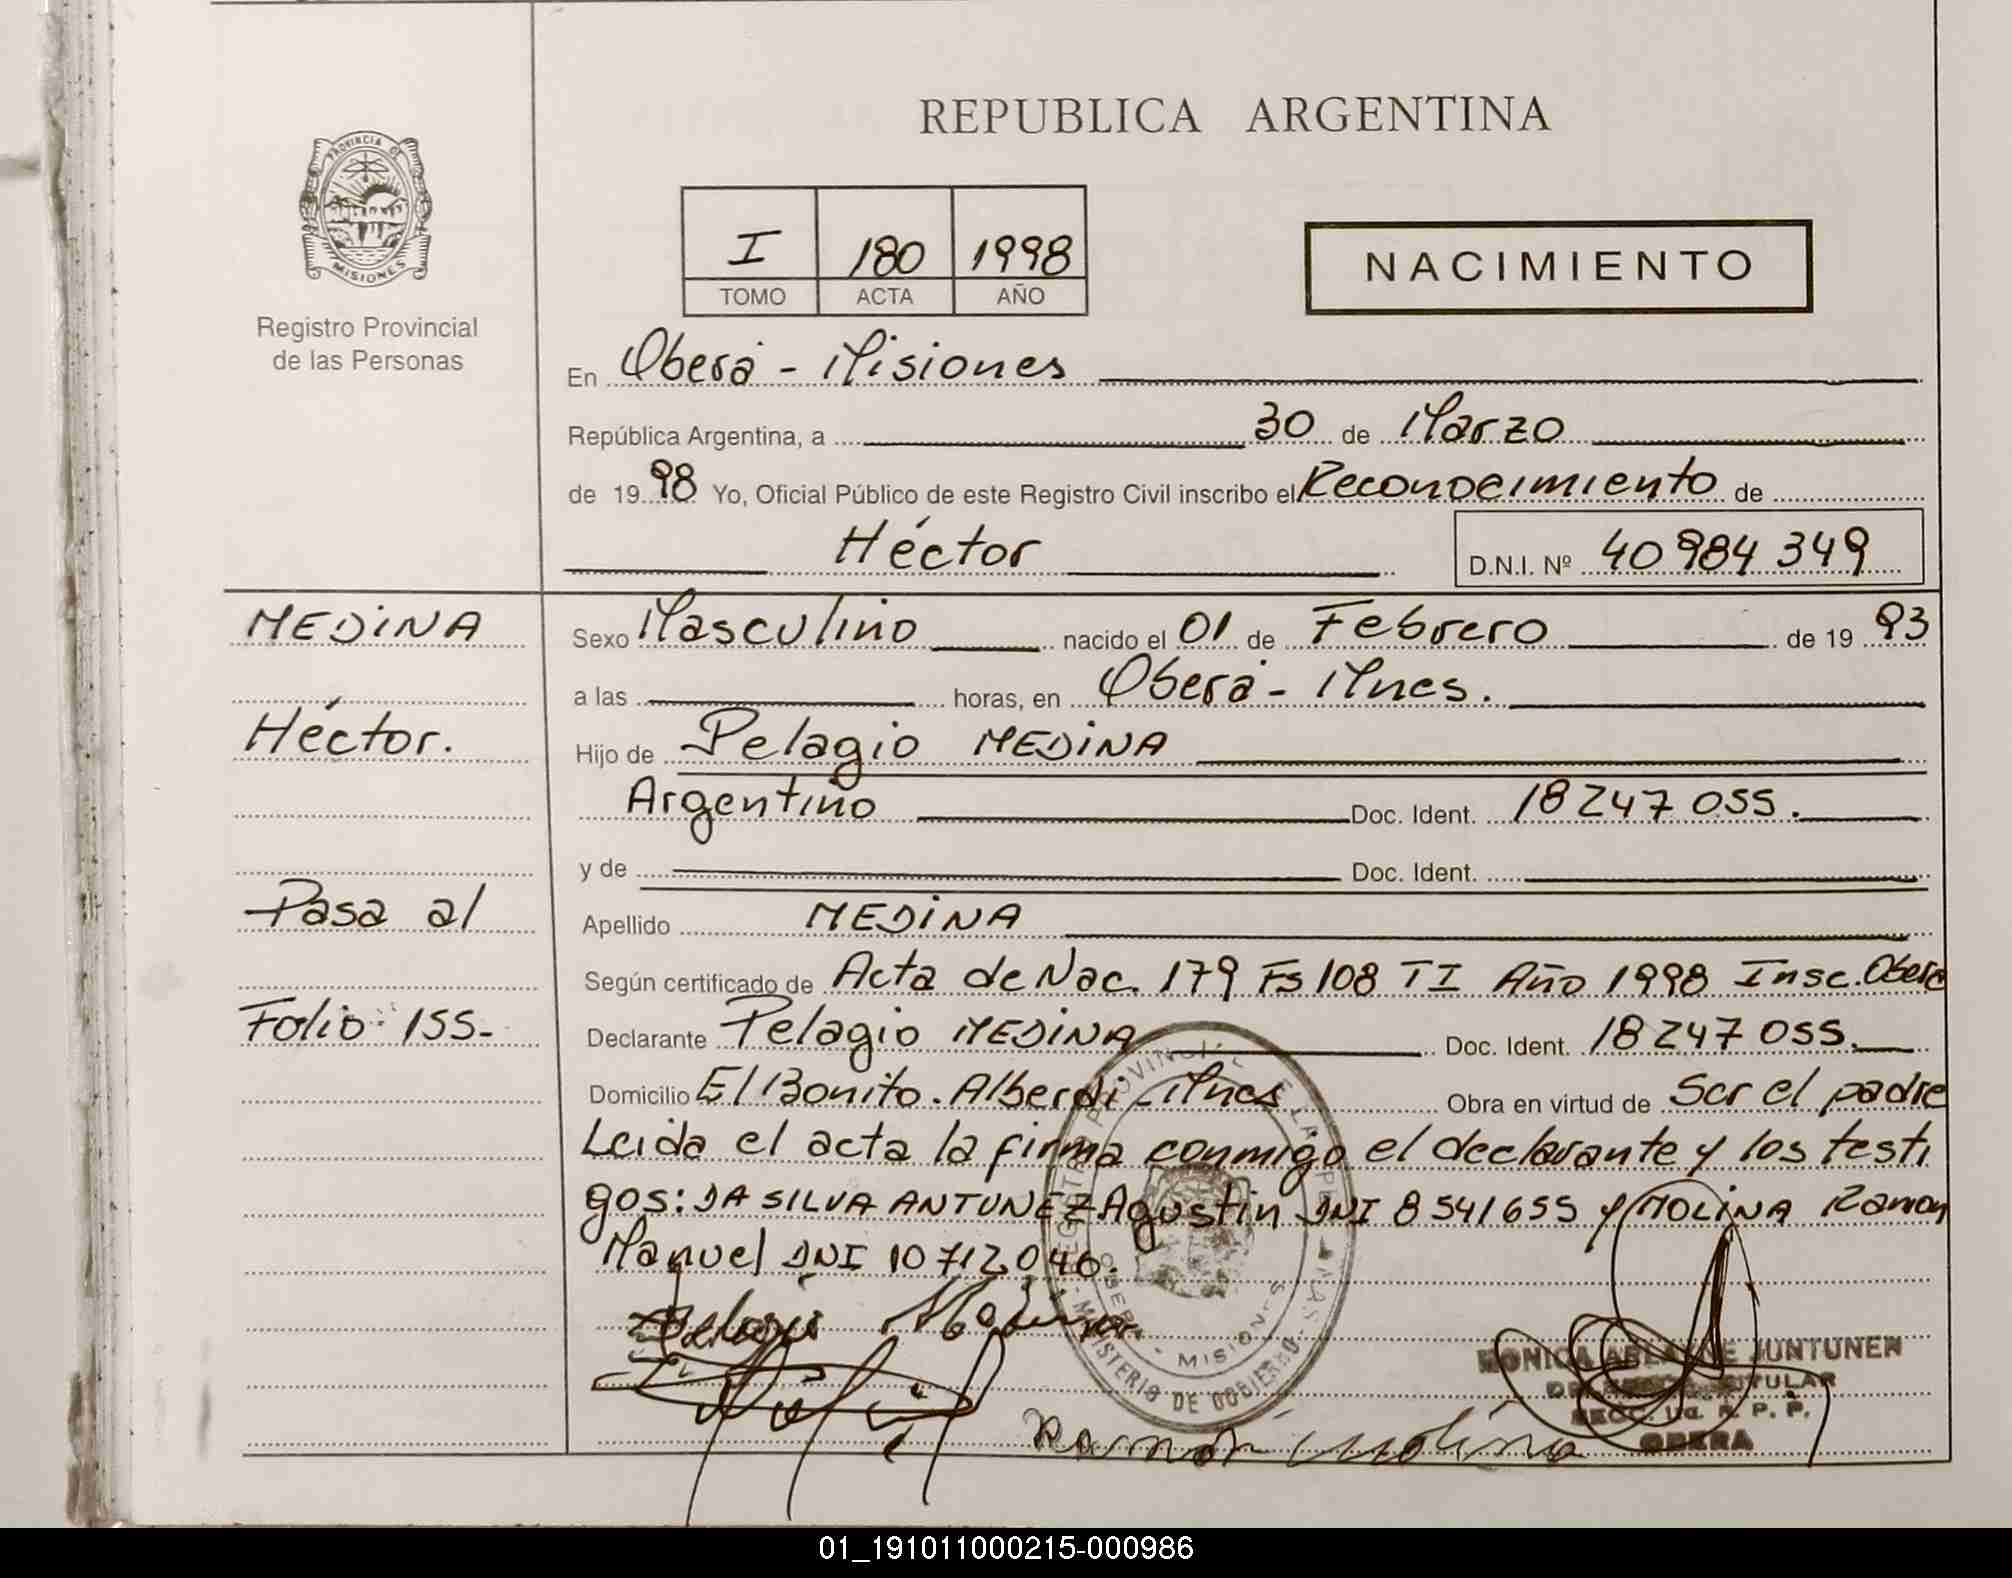 REPUBLICA ARGENTINA
PROVINCIA DE
MISIONES
Registro Provincial
de las Personas
I 180 1998
TOMO ACTA AÑO
NACIMIENTO
En Oberá - Misiones
República Argentina, a 30 de Marzo
de 19 98 Yo, Oficial Público de este Registro Civil inscribo el Reconocimiento de
Héctor D.N.I. Nº 40 984 349
MEDINA
Héctor.
Pasa al
Folio: 155-
Sexo Masculino nacido el 01 de Febrero de 19 93
a las horas, en Oberá - Mnes.
Hijo de Pelagio MEDINA
Argentino Doc. Ident. 18 247 055.
y de Doc. Ident.
Apellido MEDINA
Según certificado de Acta de Nac. 179 Fs 108 T I Año 1998 Insc. Oberá
Declarante Pelagio MEDINA Doc. Ident. 18 247 055.
Domicilio El Bonito. Alberdi - Mnes Obra en virtud de Ser el padre
Leida el acta la firma conmigo el declarante y los testi
gos: DA SILVA ANTUNEZ Agustin DNI 8 541 655 y MOLINA Ramon
Manuel DNI 10 712 046.
Pelagio Medina
MISIONES
MINISTERIO DE GOBIERNO
MONICA JUNTUNEN
TITULAR
R. P. P.
OBERA
Ramón Molina
01_191011000215-000986